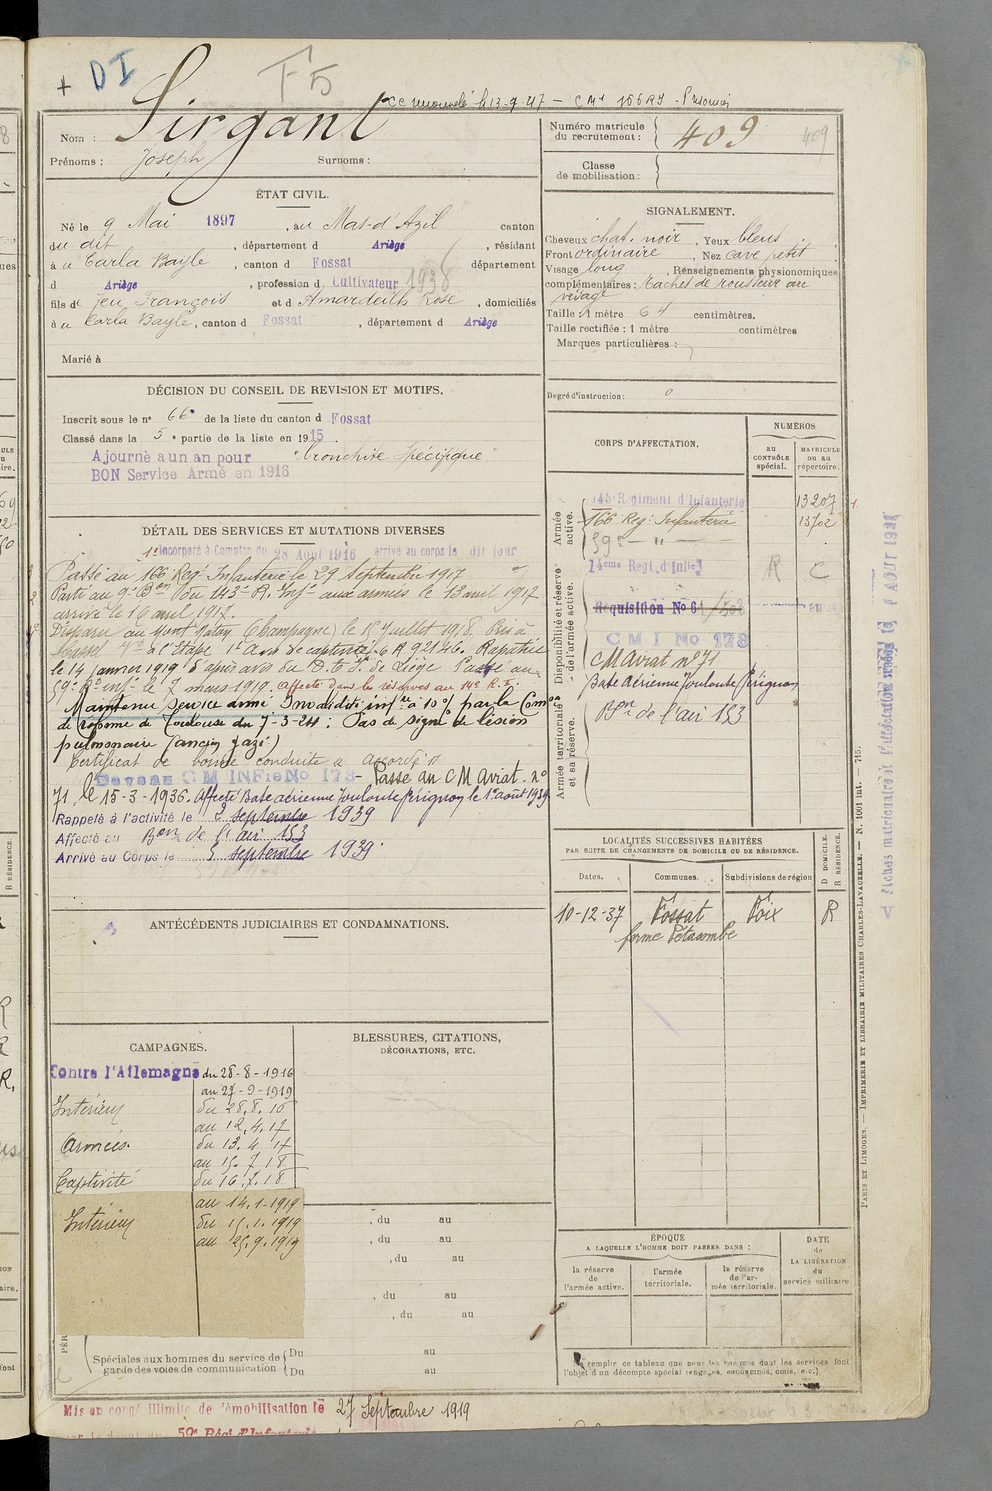 + DI F5
CC renouvelé le 13-9-47 — CMt 166 RI - Prisonnier
Nom : Sirgant
Prénoms : Joseph Surnoms :
Numéro matricule du recrutement : 409 409
Classe de mobilisation :
ÉTAT CIVIL.
Né le 9 Mai 1897, au Mas-d'Azil canton
du dit, département d Ariège, résidant
à u Carla Bayle, canton d Fossat département
d Ariège, profession d Cultivateur 1938
fils de feu François et d Amardeilh Rose, domiciliés
à u Carla Bayle, canton d Fossat, département d Ariège
Marié à
SIGNALEMENT.
Cheveux chat. noir, Yeux bleus
Front ordinaire, Nez cave petit
Visage long, Renseignements physionomiques
complémentaires : Taches de rousseur au
visage
Taille : 1 mètre 64 centimètres.
Taille rectifiée : 1 mètre centimètres
Marques particulières :
Degré d'instruction : 0
DÉCISION DU CONSEIL DE REVISION ET MOTIFS.
Inscrit sous le n° 66 de la liste du canton d Fossat
Classé dans la 5e partie de la liste en 1915.
Ajourné a un an pour "bronchite spécifique"
BON Service Armé en 1916
CORPS D'AFFECTATION.
NUMÉROS
AU CONTRÔLE spécial.
MATRICULE ou au répertoire.
Armée active.
143e Régiment d'Infanterie 13207
166 Reg. Infanterie 13702
59e - " -
14eme Regt d'Infie R C
Disponibilité et réserve de l'armée active.
Réquisition No 61
CMI No 173
CM Aviat n° 71
Base Aérienne Toulouse Pérignon
Bon de l'air 153
Armée territoriale et sa réserve.
DÉTAIL DES SERVICES ET MUTATIONS DIVERSES
1° Incorporé à Compter du 28 Août 1916 arrivé au corps le dit jour
Passé au 166 Reg. Infanterie le 29 Septembre 1917
Parti au 9e Bon du 143e R. Infie aux armées le 13 avril 1917
arrivé le 16 avril 1917.
Disparu au Mont Hatay Champagne) le 15 juillet 1918. Pris à
Avis de captivité R 92146. Rapatrié
le 14 janvier 1919 d'après avis du D. de Liège Passé au
59e Rt infie le 7 mars 1919. Affecté dans les réserves au 14e R.I.
Maintenu service armé Invalidité infre à 10% par la Comon
de réforme de Toulouse du 7-3-24 : Pas de signe de lésion
pulmonaire (ancien gazé)
Certificat de bonne conduite « accordé »
CM INFie No 173 - Passé au CM Aviat. n°
71, le 15-3-1936. Affecté Base aérienne Toulouse Pérignon le 1er août 1939.
Rappelé à l'activité le 3 septembre 1939
Affecté au Bon de l'air 153
Arrivé au Corps le 3 septembre 1939
LOCALITÉS SUCCESSIVES HABITÉES
PAR SUITE DE CHANGEMENTS DE DOMICILE OU DE RÉSIDENCE.
Dates. Communes. Subdivisions de région D DOMICILE. R RÉSIDENCE.
10-12-37 Fossat Foix R
ferme Pétacombe
ANTÉCÉDENTS JUDICIAIRES ET CONDAMNATIONS.
CAMPAGNES.
Contre l'Allemagne du 28-8-1916
au 27-9-1919
Intérieur du 28.8.16
au 12.4.17
Armées. du 13.4.17
au 15.7.18
Captivité du 16.7.18
au 14.1.1919
Intérieur du 15.1.1919
au 25.9.1919
BLESSURES, CITATIONS,
DÉCORATIONS, ETC.
, du au
, du au
, du au
, du au
, du au
Spéciales aux hommes du service de garde des voies de communication
Du au
Du au
ÉPOQUE
A LAQUELLE L'HOMME DOIT PASSER DANS :
la réserve de l'armée active.
l'armée territoriale.
la réserve de l'armée territoriale.
DATE de LA LIBÉRATION du service militaire.
remplir ce tableau que pour les hommes dont les services font
l'objet d'un décompte spécial (engagés, condamnés, omis, etc.).
Mis en congé illimité de démobilisation le 27 Septembre 1919
59e Régt d'Infanterie
PARIS ET LIMOGES. — IMPRIMERIE ET LIBRAIRIE MILITAIRES CHARLES-LAVAUZELLE. — N. 1001 int. — 715.